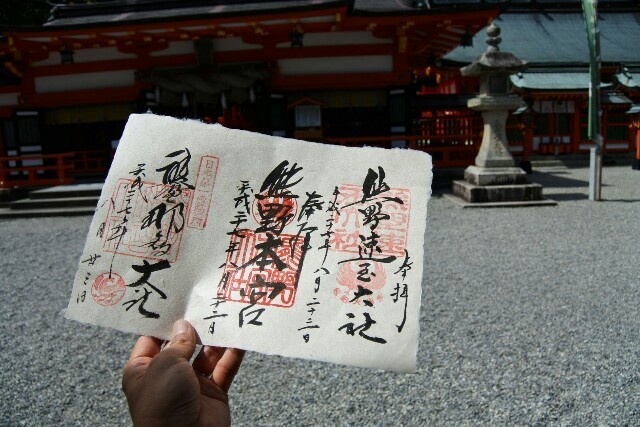 奉拝
熊野速玉大社
平成二十七年八月二十三日
奉拝
熊野本宮
平成二十七年八月二十三日
熊野那智大社
平成二十七年
八月
廿三日